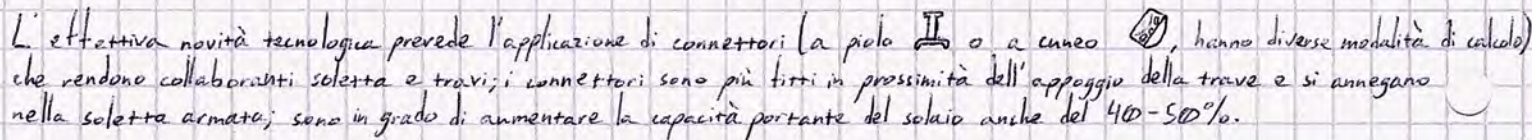 L'effettiva novità tecnologica prevede l'applicazione di connettori (a piolo o a cuneo, hanno diverse modalità di calcolo)
che rendono collaboranti soletta e travi; i connettori sono più fitti in prossimità dell'appoggio della trave e si annegano
nella soletta armata; sono in grado di aumentare la capacità portante del solaio anche del 400-500%.